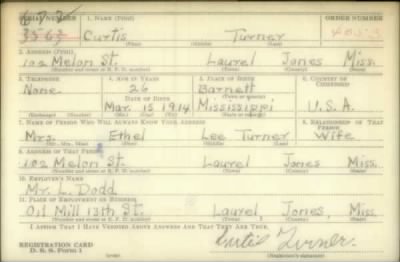 SERIAL NUMBER 1. NAME (Print) ORDER NUMBER
Curtis Turner
(First) (Middle) (Last)
2. ADDRESS (Print)
102 Melon St. Laurel Jones Miss.
(Number and street or R. F. D. number) (Town) (County) (State)
3. TELEPHONE 4. AGE IN YEARS 5. PLACE OF BIRTH 6. COUNTRY OF CITIZENSHIP
None 26 Barnett
DATE OF BIRTH (Town or county)
Mar. 15 1914 Mississippi U.S.A.
(Exchange) (Number) (Mo.) (Day) (Yr.) (State or country)
7. NAME OF PERSON WHO WILL ALWAYS KNOW YOUR ADDRESS 8. RELATIONSHIP OF THAT PERSON
Mrs. Ethel Lee Turner Wife
(Mr., Mrs., Miss) (First) (Middle) (Last)
9. ADDRESS OF THAT PERSON
102 Melon St. Laurel Jones Miss.
(Number and street or R. F. D. number) (Town) (County) (State)
10. EMPLOYER'S NAME
Mr. L. Dodd
11. PLACE OF EMPLOYMENT OR BUSINESS
Oil Mill 13th St. Laurel Jones, Miss
(Number and street or R. F. D. number) (Town) (County) (State)
I AFFIRM THAT I HAVE VERIFIED ABOVE ANSWERS AND THAT THEY ARE TRUE.
REGISTRATION CARD
D. S. S. Form 1
Curtis Turner
(Registrant's signature)